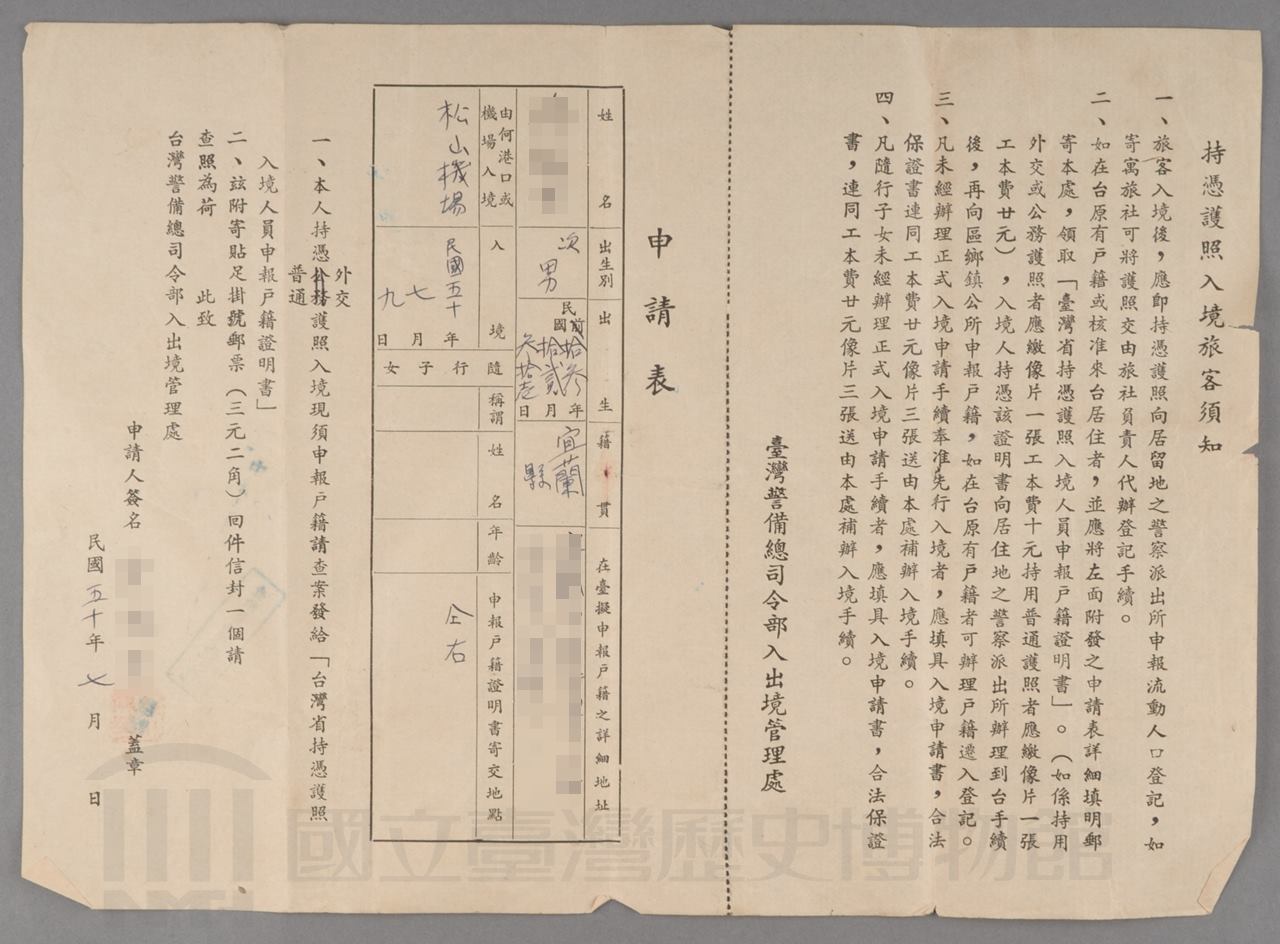 持憑護照入境旅客須知
一、旅客入境後，應即持憑護照向居留地之警察派出所申報流動人口登記，如
寄寓旅社可將護照交由旅社負責人代辦登記手續。
二、如在台原有戶籍或核准來台居住者，並應將左面附發之申請表詳細填明郵
寄本處，領取「臺灣省持憑護照入境人員申報戶籍證明書」。（如係持用
外交或公務護照者應繳像片一張工本費十元持用普通護照者應繳像片一張
工本費廿元），入境人持憑該證明書向居住地之警察派出所辦理到台手續
後，再向區鄉鎮公所申報戶籍，如在台原有戶籍者可辦理戶籍遷入登記。
三、凡未經辦理正式入境申請手續奉准先行入境者，應填具入境申請書，合法
保證書連同工本費廿元像片三張送由本處補辦入境手續。
四、凡隨行子女未經辦理正式入境申請手續者，應填具入境申請書，合法保證
書，連同工本費廿元像片三張送由本處補辦入境手續。
臺灣警備總司令部入出境管理處
申請表
姓名
出生別
出生
籍貫
在臺擬申報戶籍之詳細地址
次男
民國前拾參年
拾貳月
叁拾壱日
宜蘭縣
由何港口或機場入境
入境
隨行子女
稱謂
姓名
年齡
申報戶籍證明書寄交地點
松山機場
民國五十年
七月
九日
仝右
一、本人持憑外交公務普通護照入境現須申報戶籍請查案發給「台灣省持憑護照
入境人員申報戶籍證明書」
二、茲附寄貼足掛號郵票（三元二角）回件信封一個請
查照為荷　此致
台灣警備總司令部入出境管理處
申請人簽名　蓋章
民國五十年七月　日
國立臺灣歷史博物館